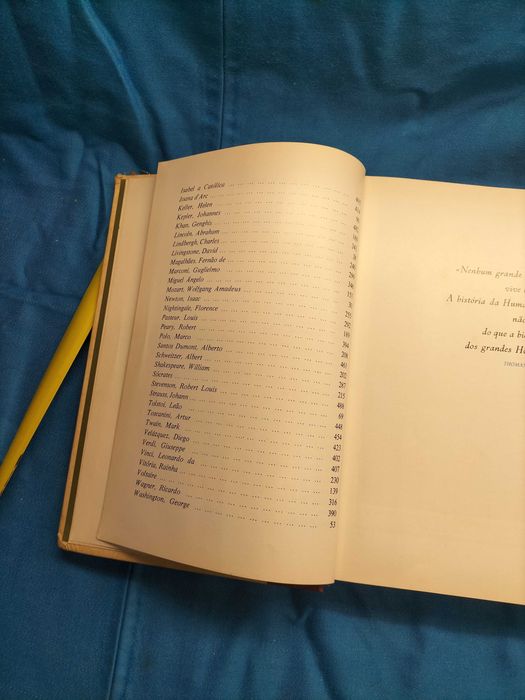 Isabel a Católica
Joana d'Arc
Keller, Helen
Kepler, Johannes
Khan, Genghis
Lincoln, Abraham
Lindbergh, Charles
Livingstone, David
Magalhães, Fernão de
Marconi, Guglielmo
Miguel Ângelo
Mozart, Wolfgang Amadeus
Newton, Isaac
Nightingale, Florence ... 292
Pasteur, Louis ... 189
Peary, Robert ... 394
Polo, Marco ... 208
Santos Dumont, Alberto ... 463
Schweitzer, Albert ... 202
Shakespeare, William ... 287
Sócrates ... 215
Stevenson, Robert Louis ... 488
Strauss, Johann ... 69
Tolstoi, Leão ... 448
Toscanini, Artur ... 454
Twain, Mark ... 423
Velázquez, Diego ... 402
Verdi, Giuseppe ... 407
Vinci, Leonardo da ... 230
Vitória, Rainha ... 139
Voltaire ... 316
Wagner, Ricardo ... 390
Washington, George ... 53
«Nenhum grande
vive
A história da Huma
não
do que a bio
dos grandes Ho
THOMAS